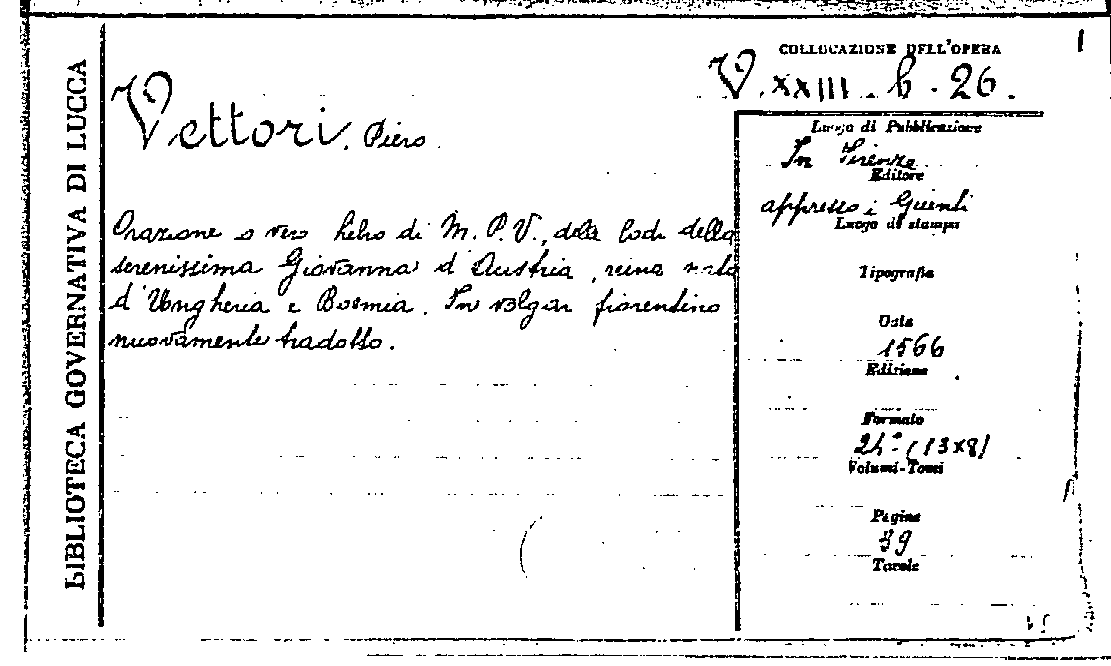 BIBLIOTECA GOVERNATIVA DI LUCCA
COLLOCAZIONE DELL'OPERA
V. XXIII. b. 26.
Vettori, Piero
Orazione o vero libro di M. P. V., delle lodi della
serenissima Giovanna d'Austria, reina nata
d'Ungheria e Boemia. In volgar fiorentino
nuovamente tradotto.
Luogo di Pubblicazione
In Firenze
Editore
appresso i Giunti
Luogo di stampa
Tipografia
Data
1566
Edizione
Formato
24° (13x8)
Volumi-Tomi
Pagine
39
Tavole